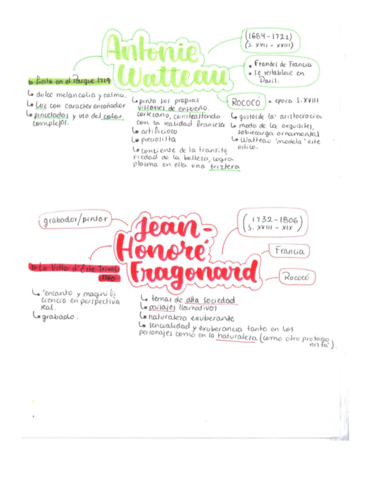 (1684-1721)
(s. XVII - XVIII)
Antonie
Watteau
• Flandes de Francia
• Se establece en
París.
en el Parque 1718
↳ dolor melancolía y calma.
↳ Luz con carácter soñador
↳ pinceladas y uso del color
complejos.
↳ pinta sus propias
visiones de ensueño
cortesano, contrastando
con la realidad francesa
↳ artificioso
↳ preciosista
↳ consciente de la transito
riedad de la belleza, logra
plasma en ella una tristeza
Rococó
• época S.XVIII
↳ gustos de la aristocracia
↳ moda de lo exquisito,
sobrecarga ornamental
↳ Watteau "modela" este
estilo.
grabador/pintor
Jean-
Honoré
Fragonard
(1732-1806)
S. XVIII - XIX
Francia
Rococó
La Villa d'Este Tivoli
1760
↳ "encanto y magnifi
cencia en perspectiva
real.
↳ grabado.
↳ temas de alta sociedad
↳ paisajes llamativos
↳ naturaleza exuberante
↳ sensualidad y exuberancia tanto en los
personajes como en la naturaleza (como otro protago
nista).